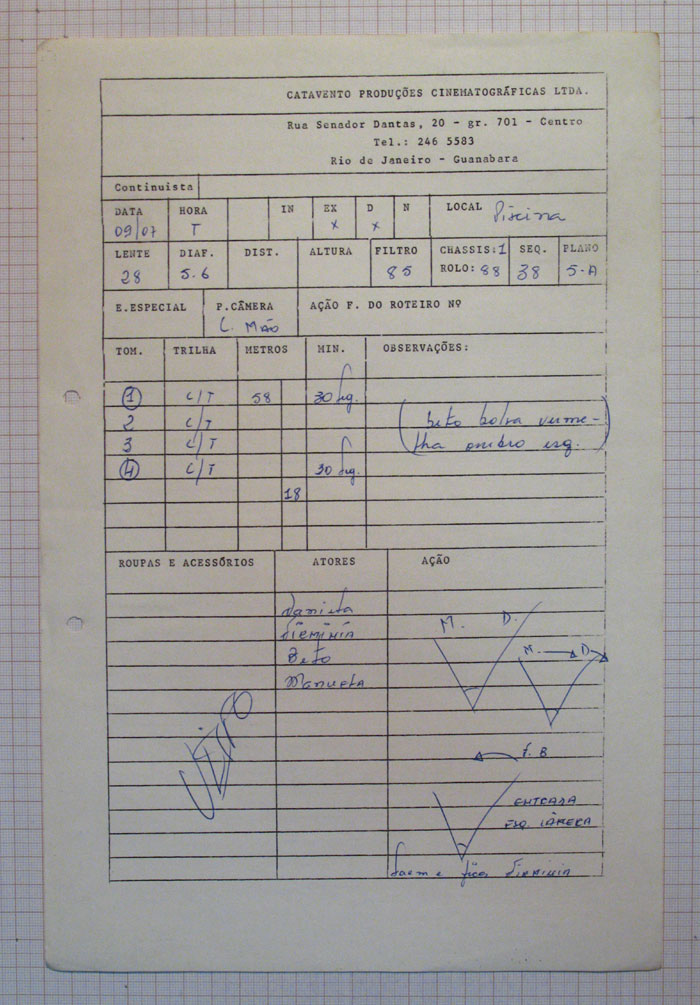 CATAVENTO PRODUÇÕES CINEMATOGRÁFICAS LTDA.
Rua Senador Dantas, 20 - gr. 701 - Centro
Tel.: 246 5583
Rio de Janeiro - Guanabara
Continuista
DATA HORA IN EX D N LOCAL Piscina
09/07 T x x
LENTE DIAF. DIST. ALTURA FILTRO CHASSIS: 1 SEQ. PLANO
28 5.6 85 ROLO: 88 38 5-A
E.ESPECIAL P.CÂMERA AÇÃO F. DO ROTEIRO Nº
C. Mão
TOM. TRILHA METROS MIN. OBSERVAÇÕES:
1 C/T 58 30 seg.
2 C/T (beto bolsa verme-
3 C/T lha ombro esq.)
4 C/T 30 seg.
18
ROUPAS E ACESSÓRIOS ATORES AÇÃO
Daniela
Firminia M. D.
Beto M. D.
Manuela
F. B
ENTRADA
ESQ. CÂMERA
Saem e fica Firminia